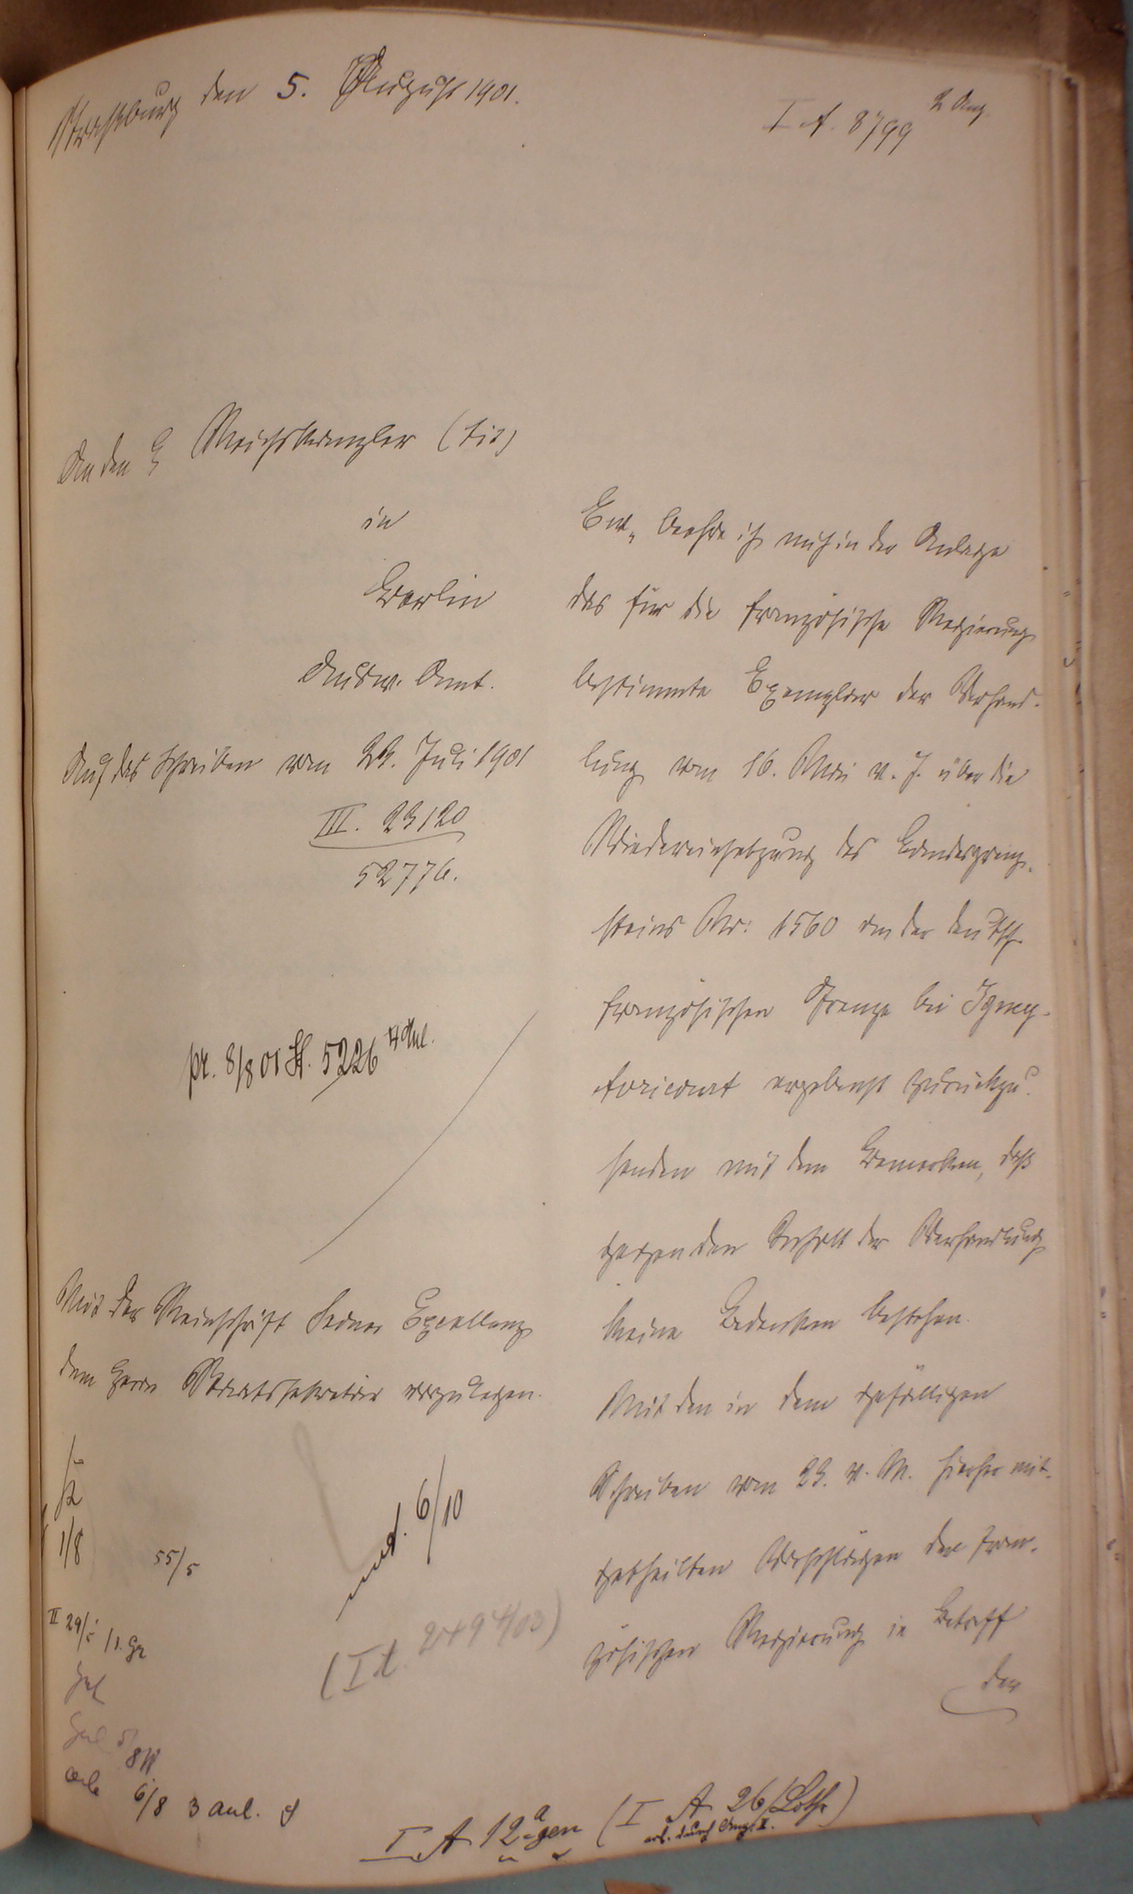 Straßburg den 5. August 1901.
I. A. 8799
2 Anl.
An den H Reichskanzler (tit)
in
Berlin
Ausw. Amt.
Auf das Schreiben vom 23. Juli 1901
III. 23120
52776.
pr. 8/8 01 St. 5226
Mit der Reinschrift Seiner Excellenz
dem Herrn Staatssekretär vorzulegen.
1/8
55/5
und. 6/10
(I A. 2494/03)
II 29/
6/8 3 anl.
Ew. beehre ich mich in der Anlage
das für die französische Regierung
bestimmte Exemplar der Verhand-
lung vom 16. Mai d. J. über die
Wiedereinsetzung des Landesgrenz-
steins Nr: 1560 an der deutsch-
französischen Grenze bei Igney-
Avricourt ergebenst zurückzu-
senden mit dem Bemerken, daß
gegen den Inhalt der Verhandlung
keine Bedenken bestehen.
Mit den in dem gefälligen
Schreiben vom 23. v. M. hierher mit-
getheilten Vorschlägen der fran-
zösischen Regierung in Betreff
der
I A 12 a gen (I A 26/Loth.)